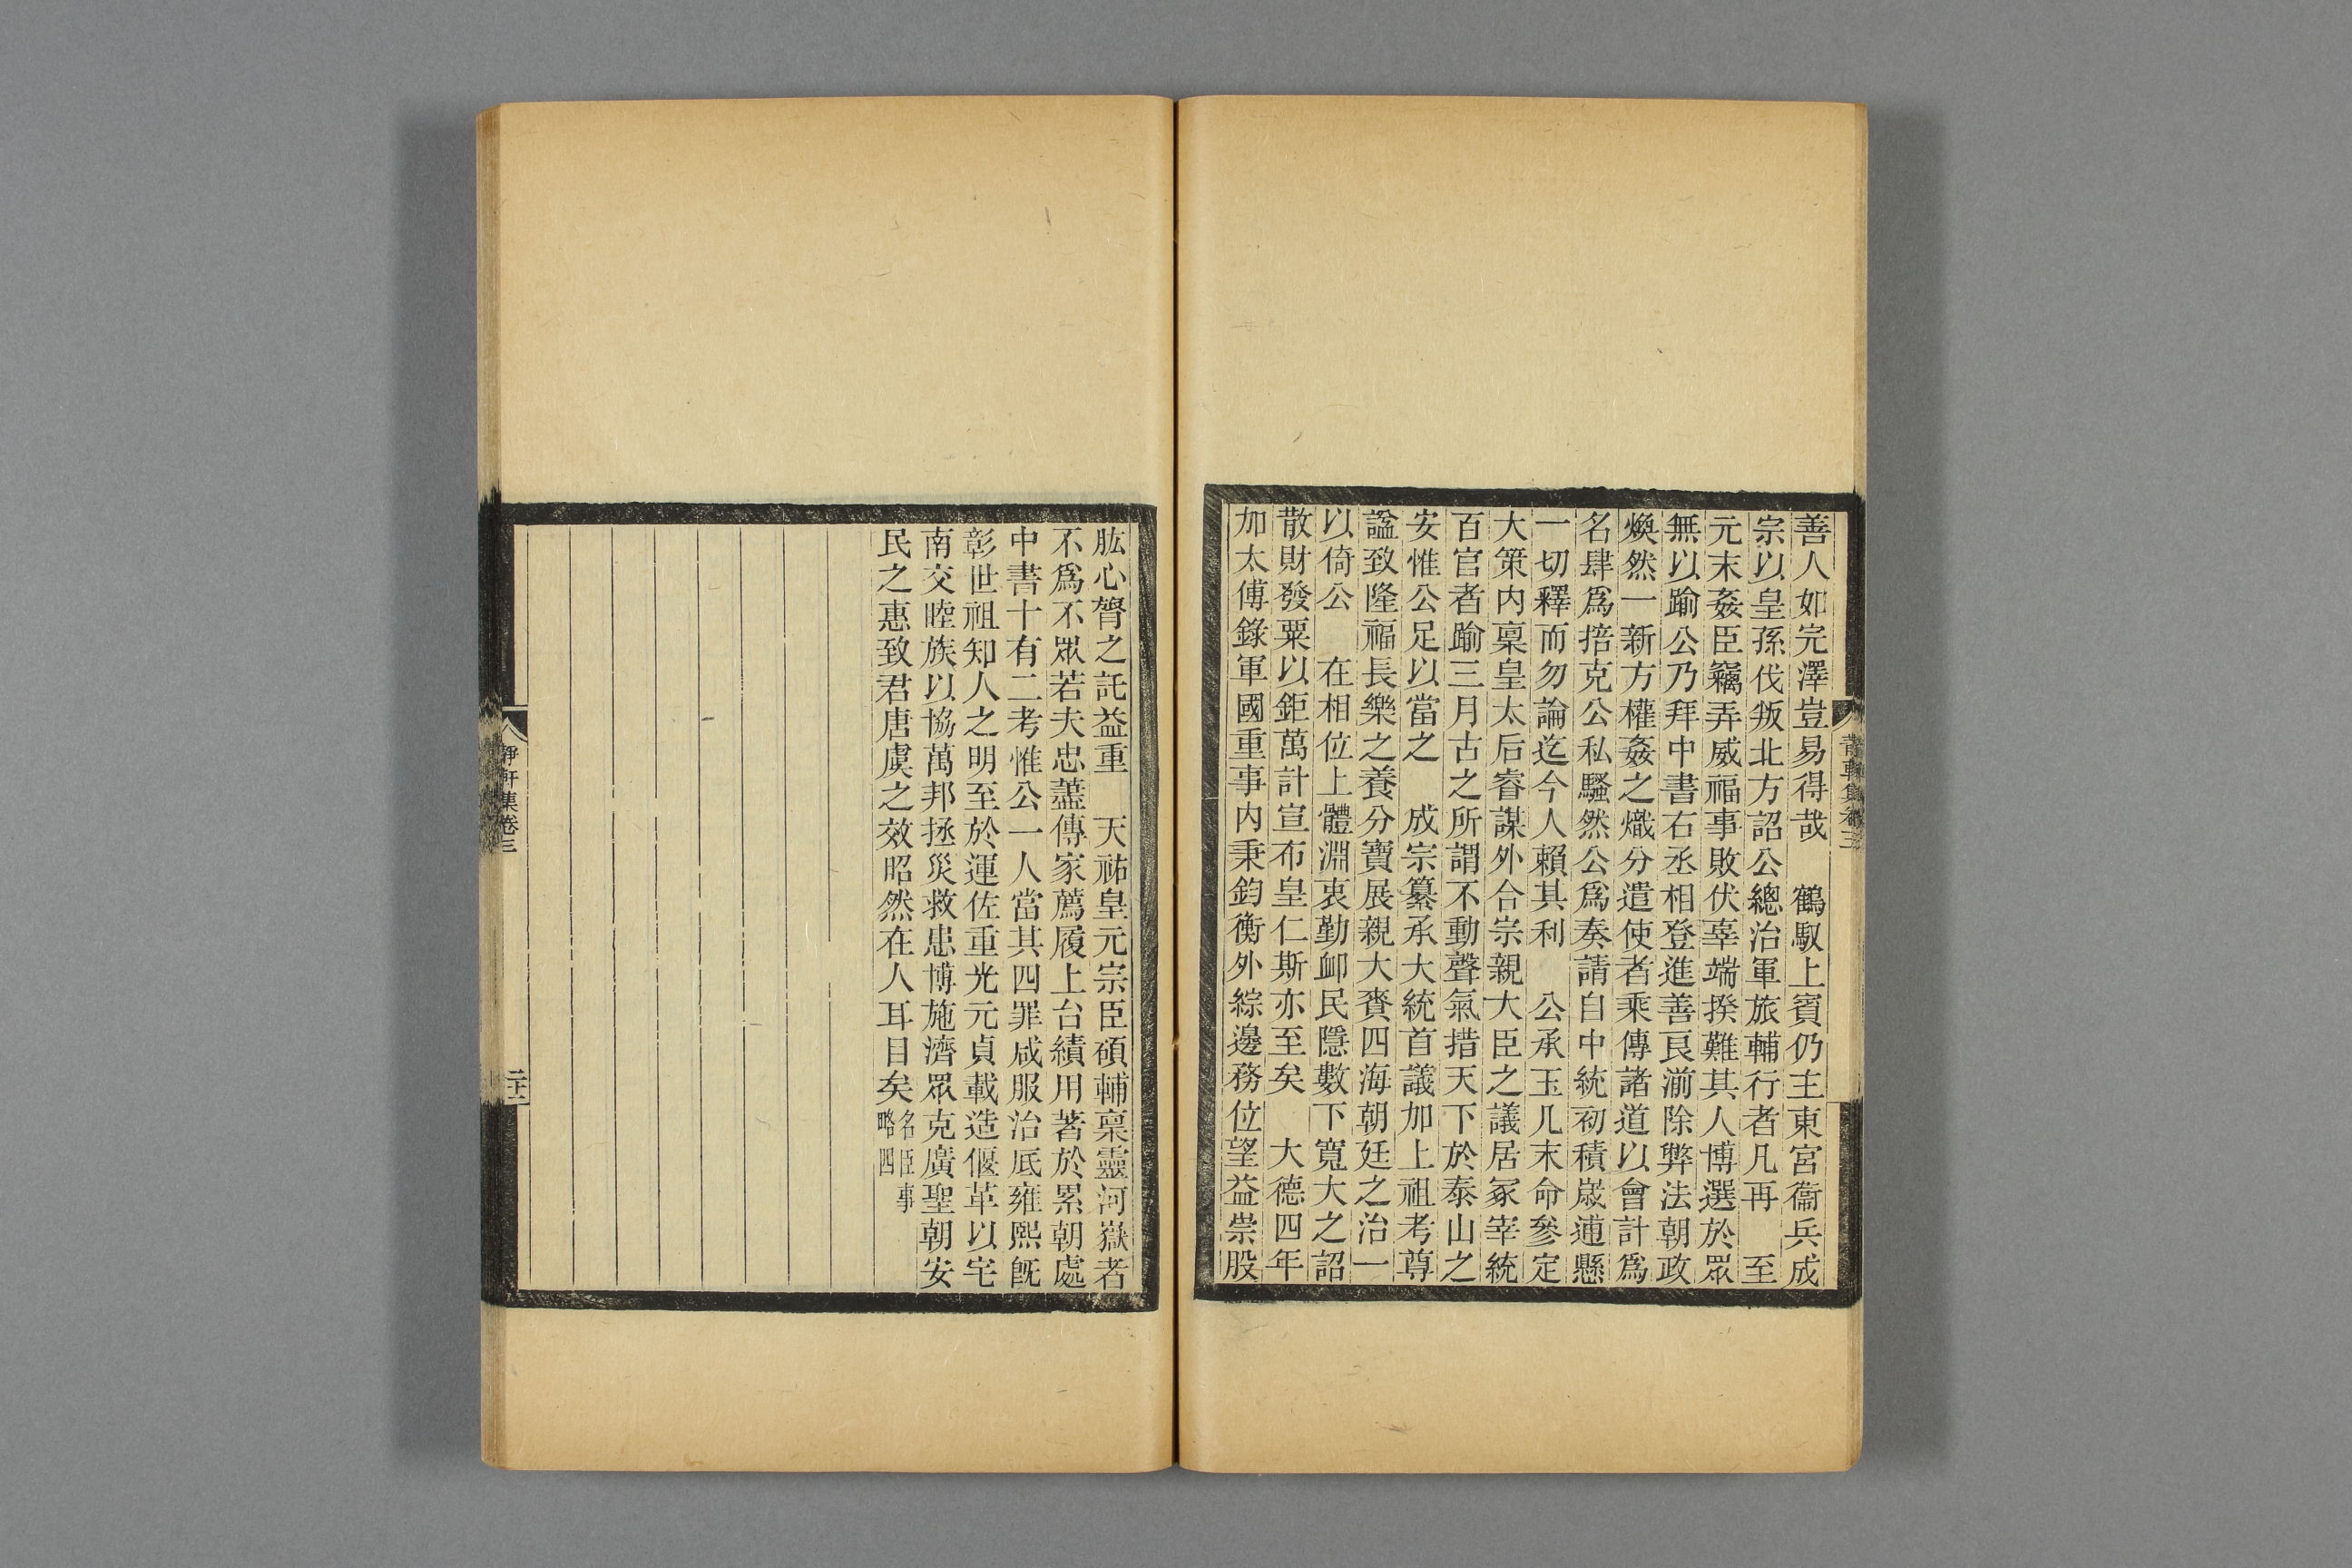 善人如完澤豈易得哉　鶴馭上賓仍主東宮衞兵成
宗以皇孫伐叛北方詔公總治軍旅輔行者凡再　至
元末姦臣竊弄威福事敗伏辜端揆難其人博選於眾
無以踰公乃拜中書右丞相登進善良湔除弊法朝政
煥然一新方權姦之熾分遣使者乘傳諸道以會計爲
名肆爲掊克公私騷然公爲奏請自中統初積歲逋懸
一切釋而勿論迄今人賴其利　公承玉几末命參定
大策內稟皇太后睿謀外合宗親大臣之議居冢宰統
百官者踰三月古之所謂不動聲氣措天下於泰山之
安惟公足以當之　成宗纂承大統首議加上祖考尊
諡致隆福長樂之養分寶展親大賚四海朝廷之治一
以倚公　在相位上體淵衷勤卹民隱數下寬大之詔
散財發粟以鉅萬計宣布皇仁斯亦至矣　大德四年
加太傅錄軍國重事內秉鈞衡外綜邊務位望益崇股
靜軒集卷三
肱心膂之託益重　天祐皇元宗臣碩輔稟靈河嶽者
不爲不眾若夫忠藎傳家薦履上台績用著於累朝處
中書十有二考惟公一人當其四罪咸服治底雍熙旣
彰世祖知人之明至於運佐重光元貞載造偃革以宅
南交睦族以協萬邦拯災救患博施濟眾克廣聖朝安
民之惠致君唐虞之效昭然在人耳目矣名臣事
略四
靜軒集卷三